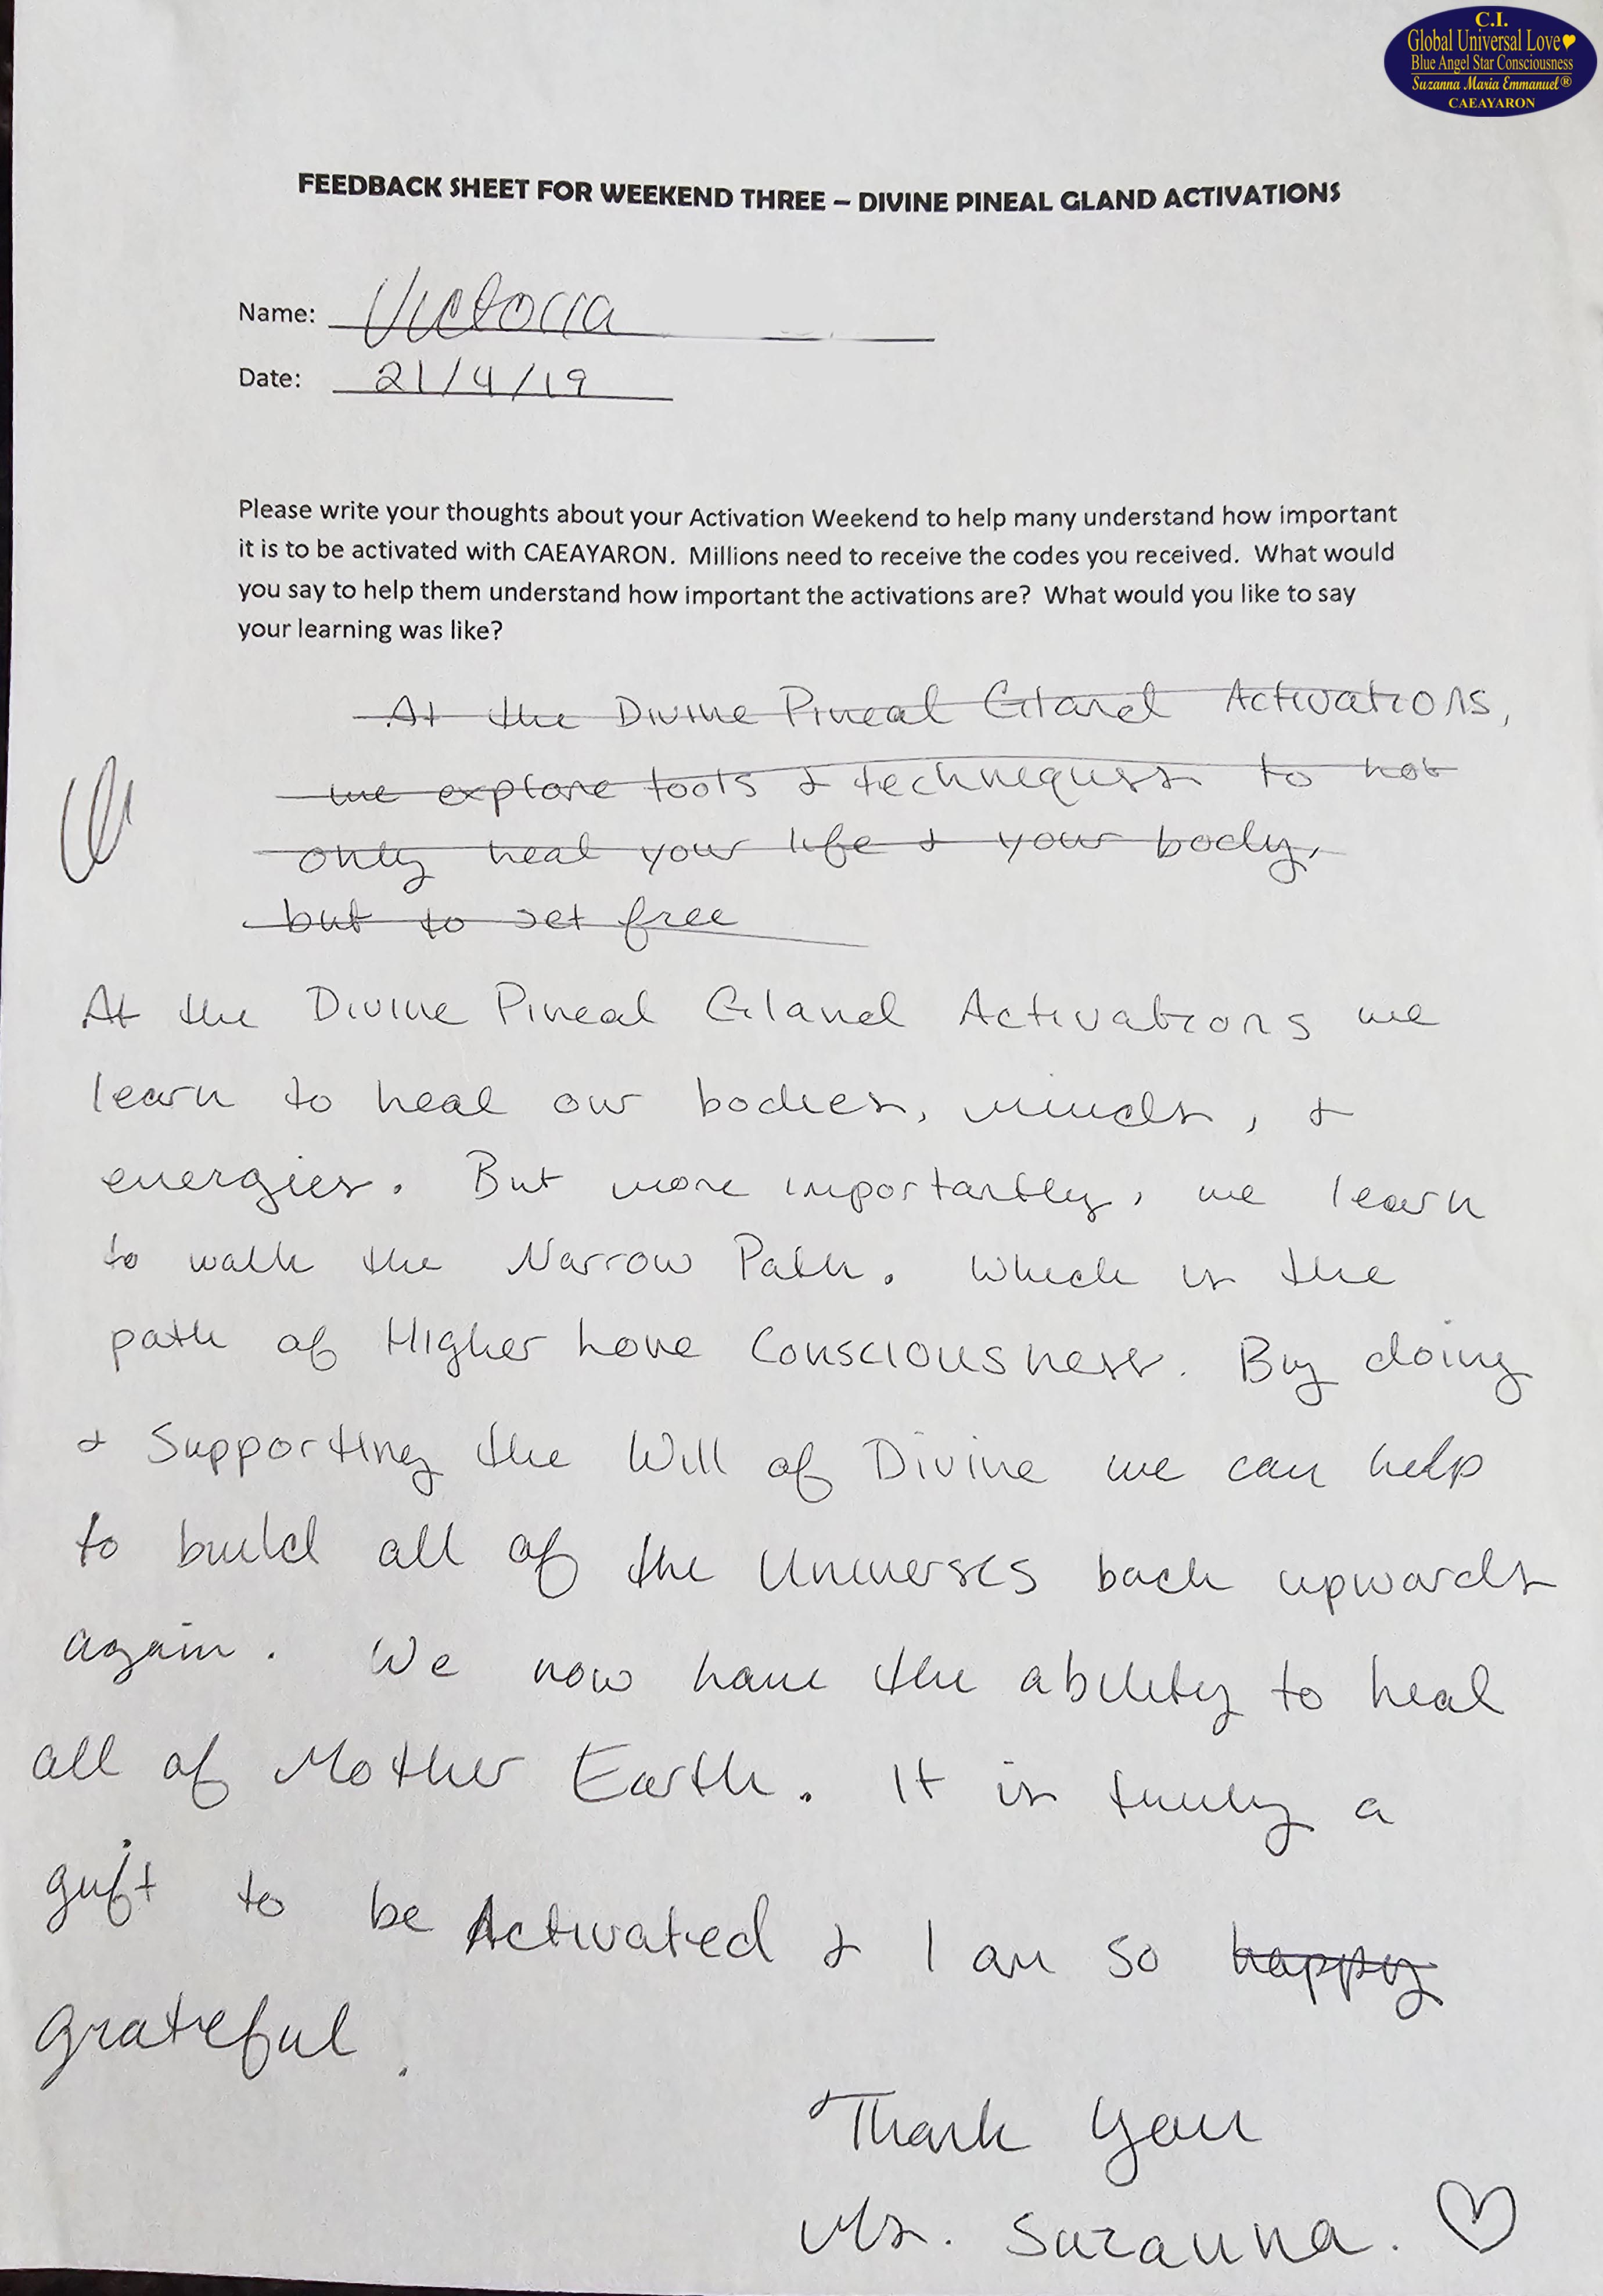 C.I.
Global Universal Love
Blue Angel Star Consciousness
Suzanna Maria Emmanuel®
CAEAYARON
FEEDBACK SHEET FOR WEEKEND THREE – DIVINE PINEAL GLAND ACTIVATIONS
Name: Victoria
Date: 21/4/19
Please write your thoughts about your Activation Weekend to help many understand how important
it is to be activated with CAEAYARON. Millions need to receive the codes you received. What would
you say to help them understand how important the activations are? What would you like to say
your learning was like?
At the Divine Pineal Gland Activations,
we explore tools & techneques to not
only heal your life & your body,
but to set free
At the Divine Pineal Gland Activations we
learn to heal our bodies, minds, &
energies. But more importantly, we learn
to walk the Narrow Path. Which is the
path of Higher Love Consciousness. By doing
& Supporting the Will of Divine we can help
to build all of the Universes back upwards
again. We now have the ability to heal
all of Mother Earth. It is truly a
gift to be Activated & I am so happy
grateful.
Thank you
Ms. Suzanna.